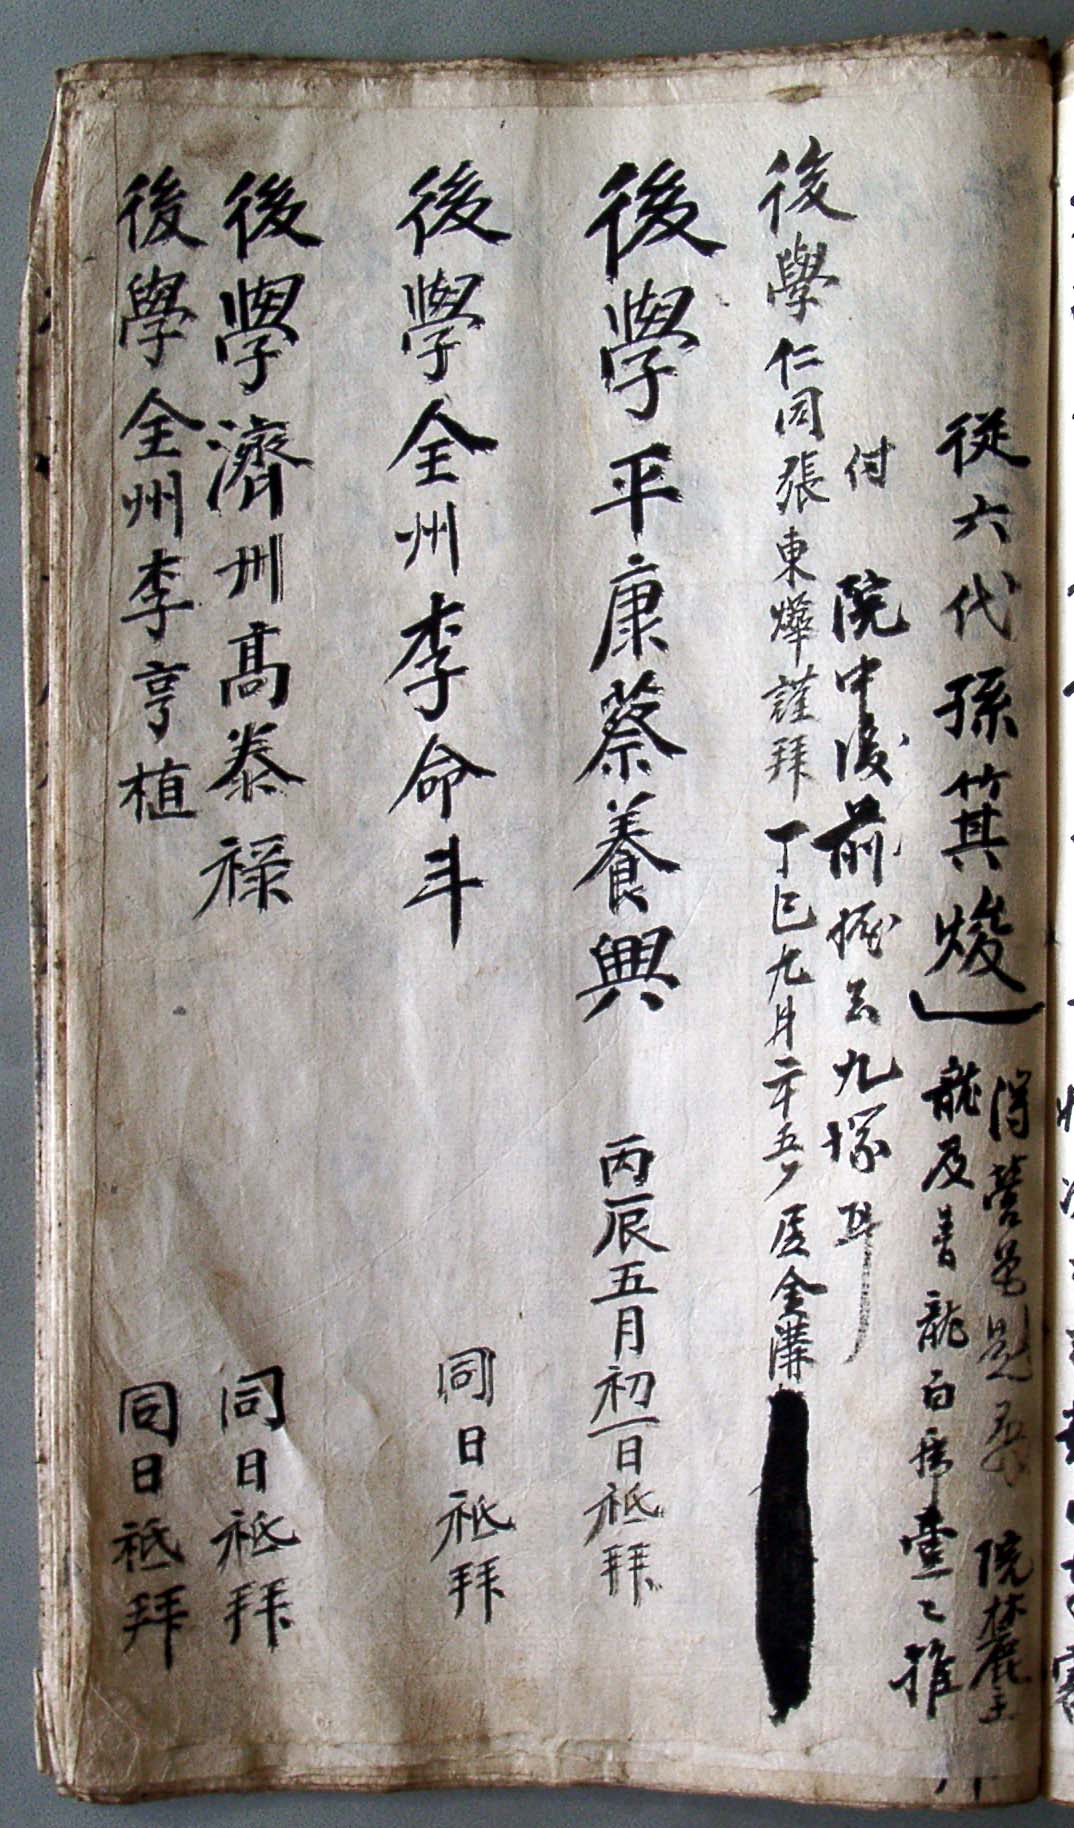 從六代孫箕焌
得營邑題辰 院麓主
龍及靑龍白虎壹〻推
付
院中後前掘去九塚耳
後學仁同張東燁謹拜 丁巳九月二十五 居金溝
後學平康蔡養興 丙辰五月初一日祗拜
後學全州李命斗 同日祗拜
後學濟州高泰祿 同日祗拜
後學全州李亨植 同日祗拜